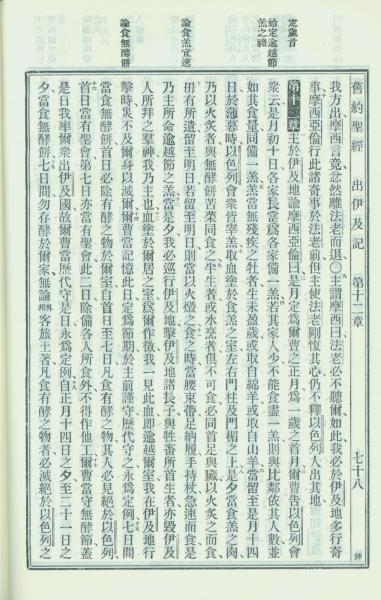 舊約聖經 出伊及記 第十二章 七十八
定歲首
始定逾越節
羔之禮
論食羔宜速
論食無酵餅
我方出摩西言竟忿然離法老而退〇主謂摩西曰法老必不聽爾如此我必於伊及地多行奇
事摩西亞倫行此諸奇事於法老前但主使法老剛愎其心仍不釋以色列人出其地
第十二章 主於伊及地諭摩西亞倫曰是月定爲爾曹之正月爲一歲之首月爾曹告以色列會
衆云是月初十日各家長當爲各家備一羔若其家人少不能食盡一羔則與比鄰依其人數並
如其食量同備一羔羔當無殘疾之牡者生未盈歲或取自綿羊或取自山羊當留至是月十四
日於薄暮時以色列會衆皆宰羔取血塗於食羔之室左右門柱及門楣之上是夕當食羔之肉
乃以火炙者與無酵餅苦菜同食之半生者或水烹者俱不可食必同首足與臟以火炙之而食
毋有所遺留至明日若留至明日則當以火燬之食之時當腰束帶足納履手持杖急速而食是
乃主所命逾越節之羔當是夕我必巡行伊及地擊伊及地諸長子與牲畜所首生者亦毀伊及
人所拜之羣神我乃主也血塗於爾居之室爲爾作徵我一見此血卽逾越爾室我在伊及地行
擊時災不及爾身以滅爾爾曹當記憶此日定爲節期於主前謹守歷代守之永爲定例七日間
當食無酵餅首日必除有酵之物於爾室自首日至七日凡食有酵之物其人必見絕於以色列
首日當有聖會第七日亦當有聖會此二日除備各人所食外不得作他工爾曹當守無酵節蓋
是日我率爾衆出伊及國故爾曹當歷代守是日永爲定例自正月十四日之夕至二十一日之
夕當食無酵餅七日間勿存酵於爾家無論客旅土著凡食有酵之物者必滅絕於以色列之